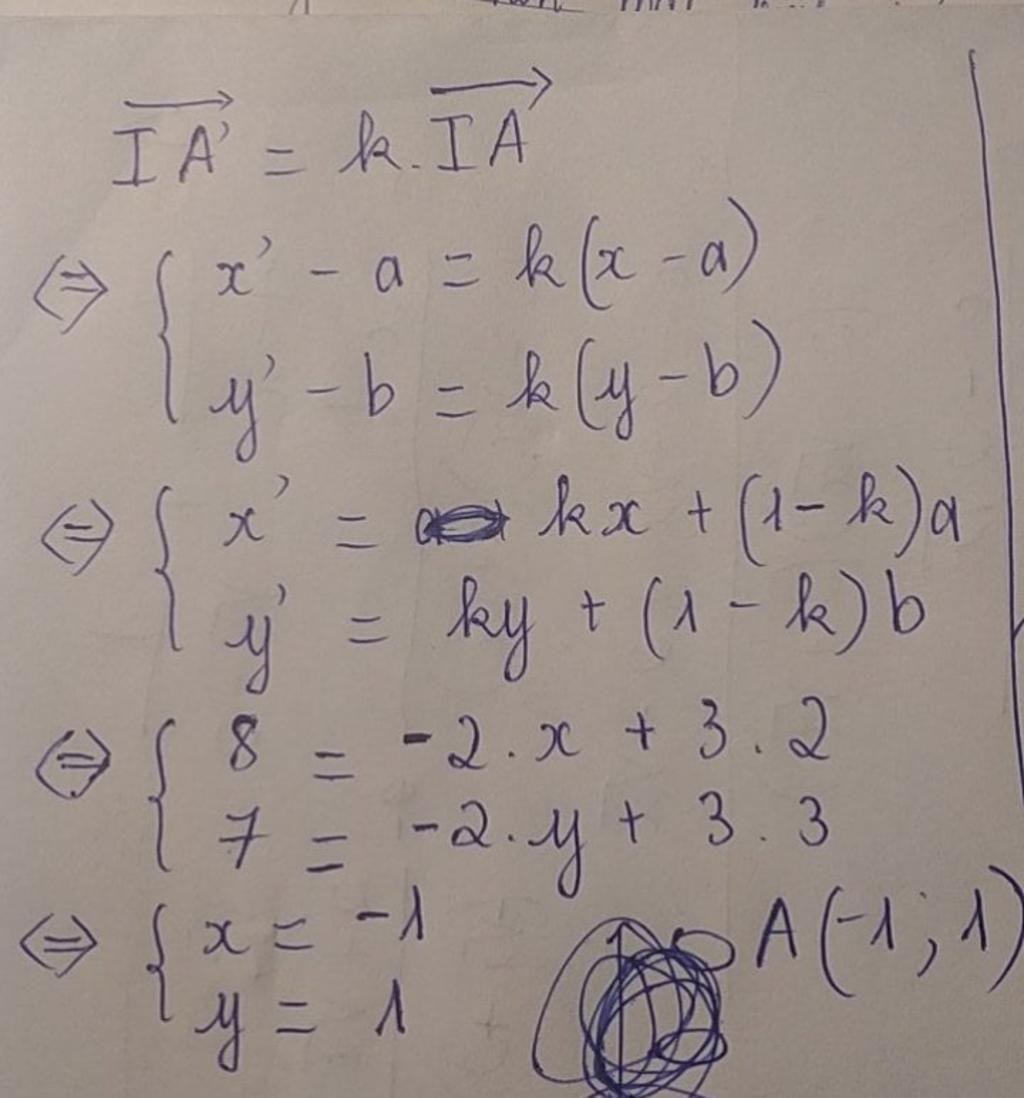 IA' = k. IA
⇔ { x' - a = k(x - a)
y' - b = k(y - b)
⇔ { x' = kx + (1 - k)a
y' = ky + (1 - k)b
⇔ { 8 = -2.x + 3.2
7 = -2.y + 3.3
⇔ { x = -1
y = 1
A(-1; 1)